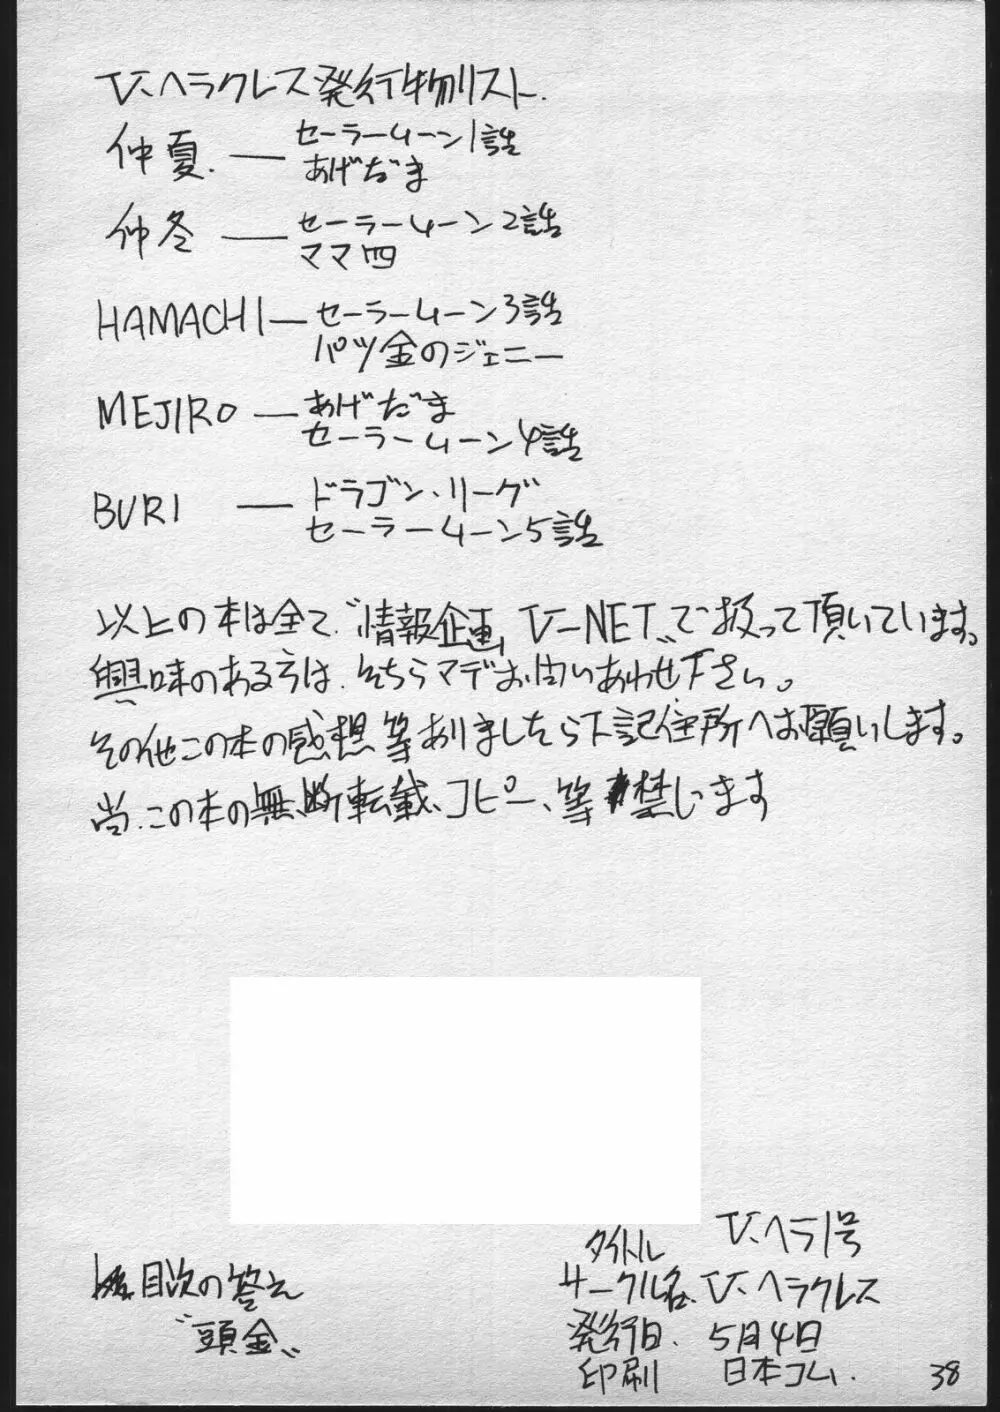 V.ヘラクレス発行物リスト.
仲夏. — セーラームーン1話
あげだま
仲冬 — セーラームーン2話
ママ四
HAMACHI — セーラームーン3話
パツ金のジェニー
MEJIRO — あげだま
セーラームーン4話
BURI — ドラゴン・リーグ
セーラームーン5話
以上の本は全て"情報企画 V-NET"で扱って頂いています。
興味のある方は、そちらマデお問いあわせ下さい。
その他この本の感想等ありましたら下記住所へお願いします。
尚、この本の無断転載、コピー、等禁じます
タイトル V.ヘラ1号
サークル名. V.ヘラクレス
発行日. 5月4日
印刷 日本コム.
目次の答え
"頭金"
38